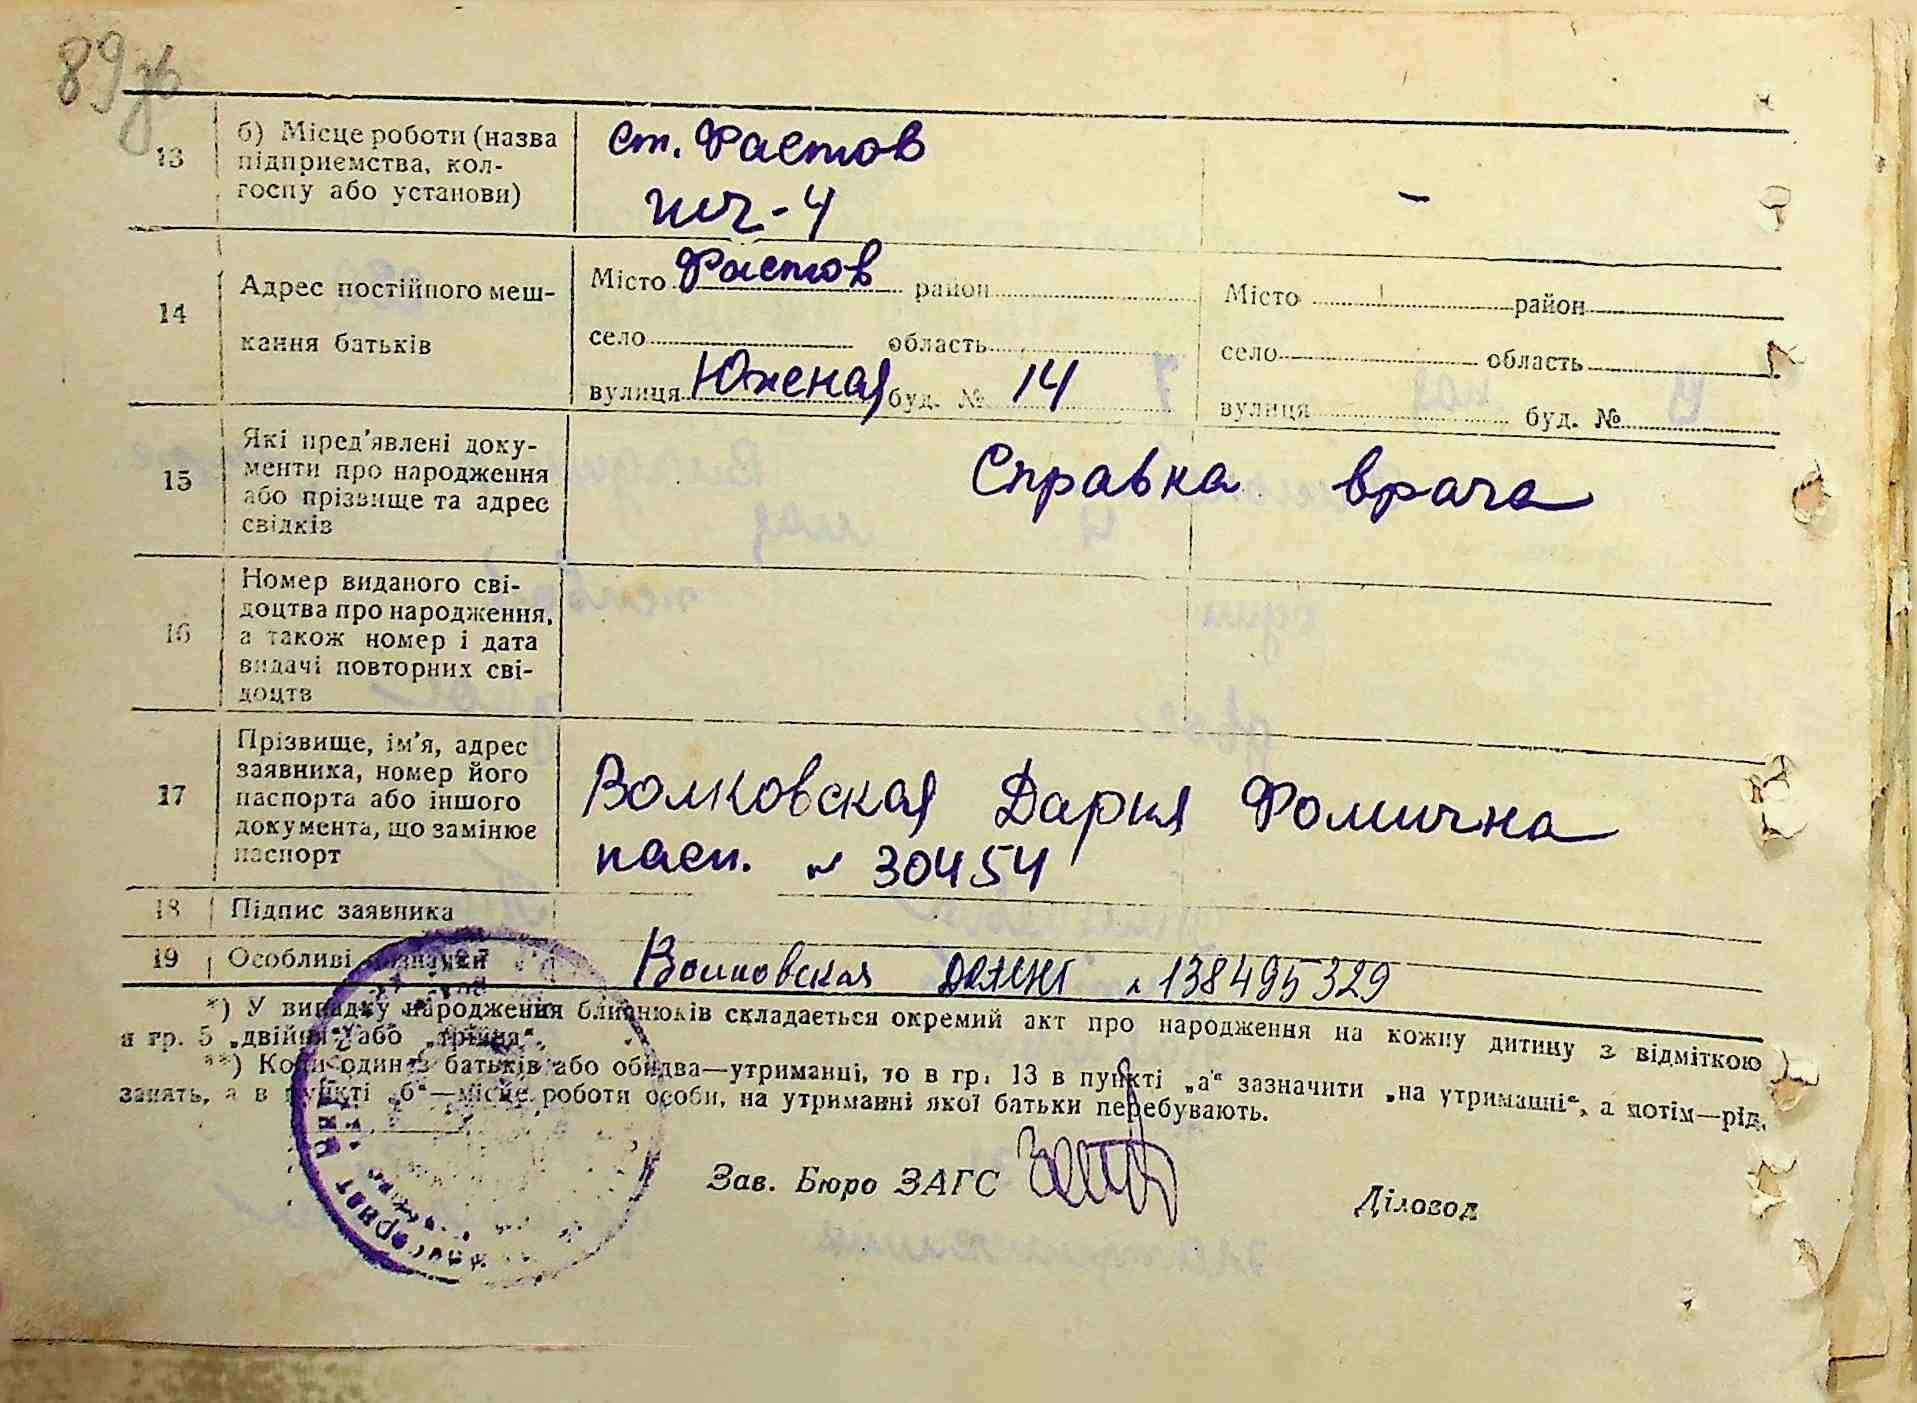 89зв
13
б) Місце роботи (назва
підприємства, кол-
госпу або установи)
ст. Фастов
пч-4
–
14
Адрес постійного меш-
кання батьків
Місто Фастов район
село область
вулиця Южная буд. № 14
Місто район
село область
вулиця буд. №
15
Які пред'явлені доку-
менти про народження
або прізвище та адрес
свідків
Справка врача
16
Номер виданого сві-
доцтва про народження,
а також номер і дата
видачі повторних сві-
доцтв
17
Прізвище, ім'я, адрес
заявника, номер його
паспорта або іншого
документа, що замінює
паспорт
Волковская Дария Фомична
пасп. № 30454
18
Підпис заявника
19
Особливі
Волковская № 138495329
*) У випадку народження близнюків складається окремий акт про народження на кожну дитину з відміткою
в гр. 5 „двійня“ або „трійня“.
**) Коли один з батьків або обидва—утриманці, то в гр. 13 в пункті „а“ зазначити „на утриманні“, а потім—рід
занять, а в пункті „б“—місце роботи особи, на утриманні якої батьки перебувають.
Зав. Бюро ЗАГС
Діловод